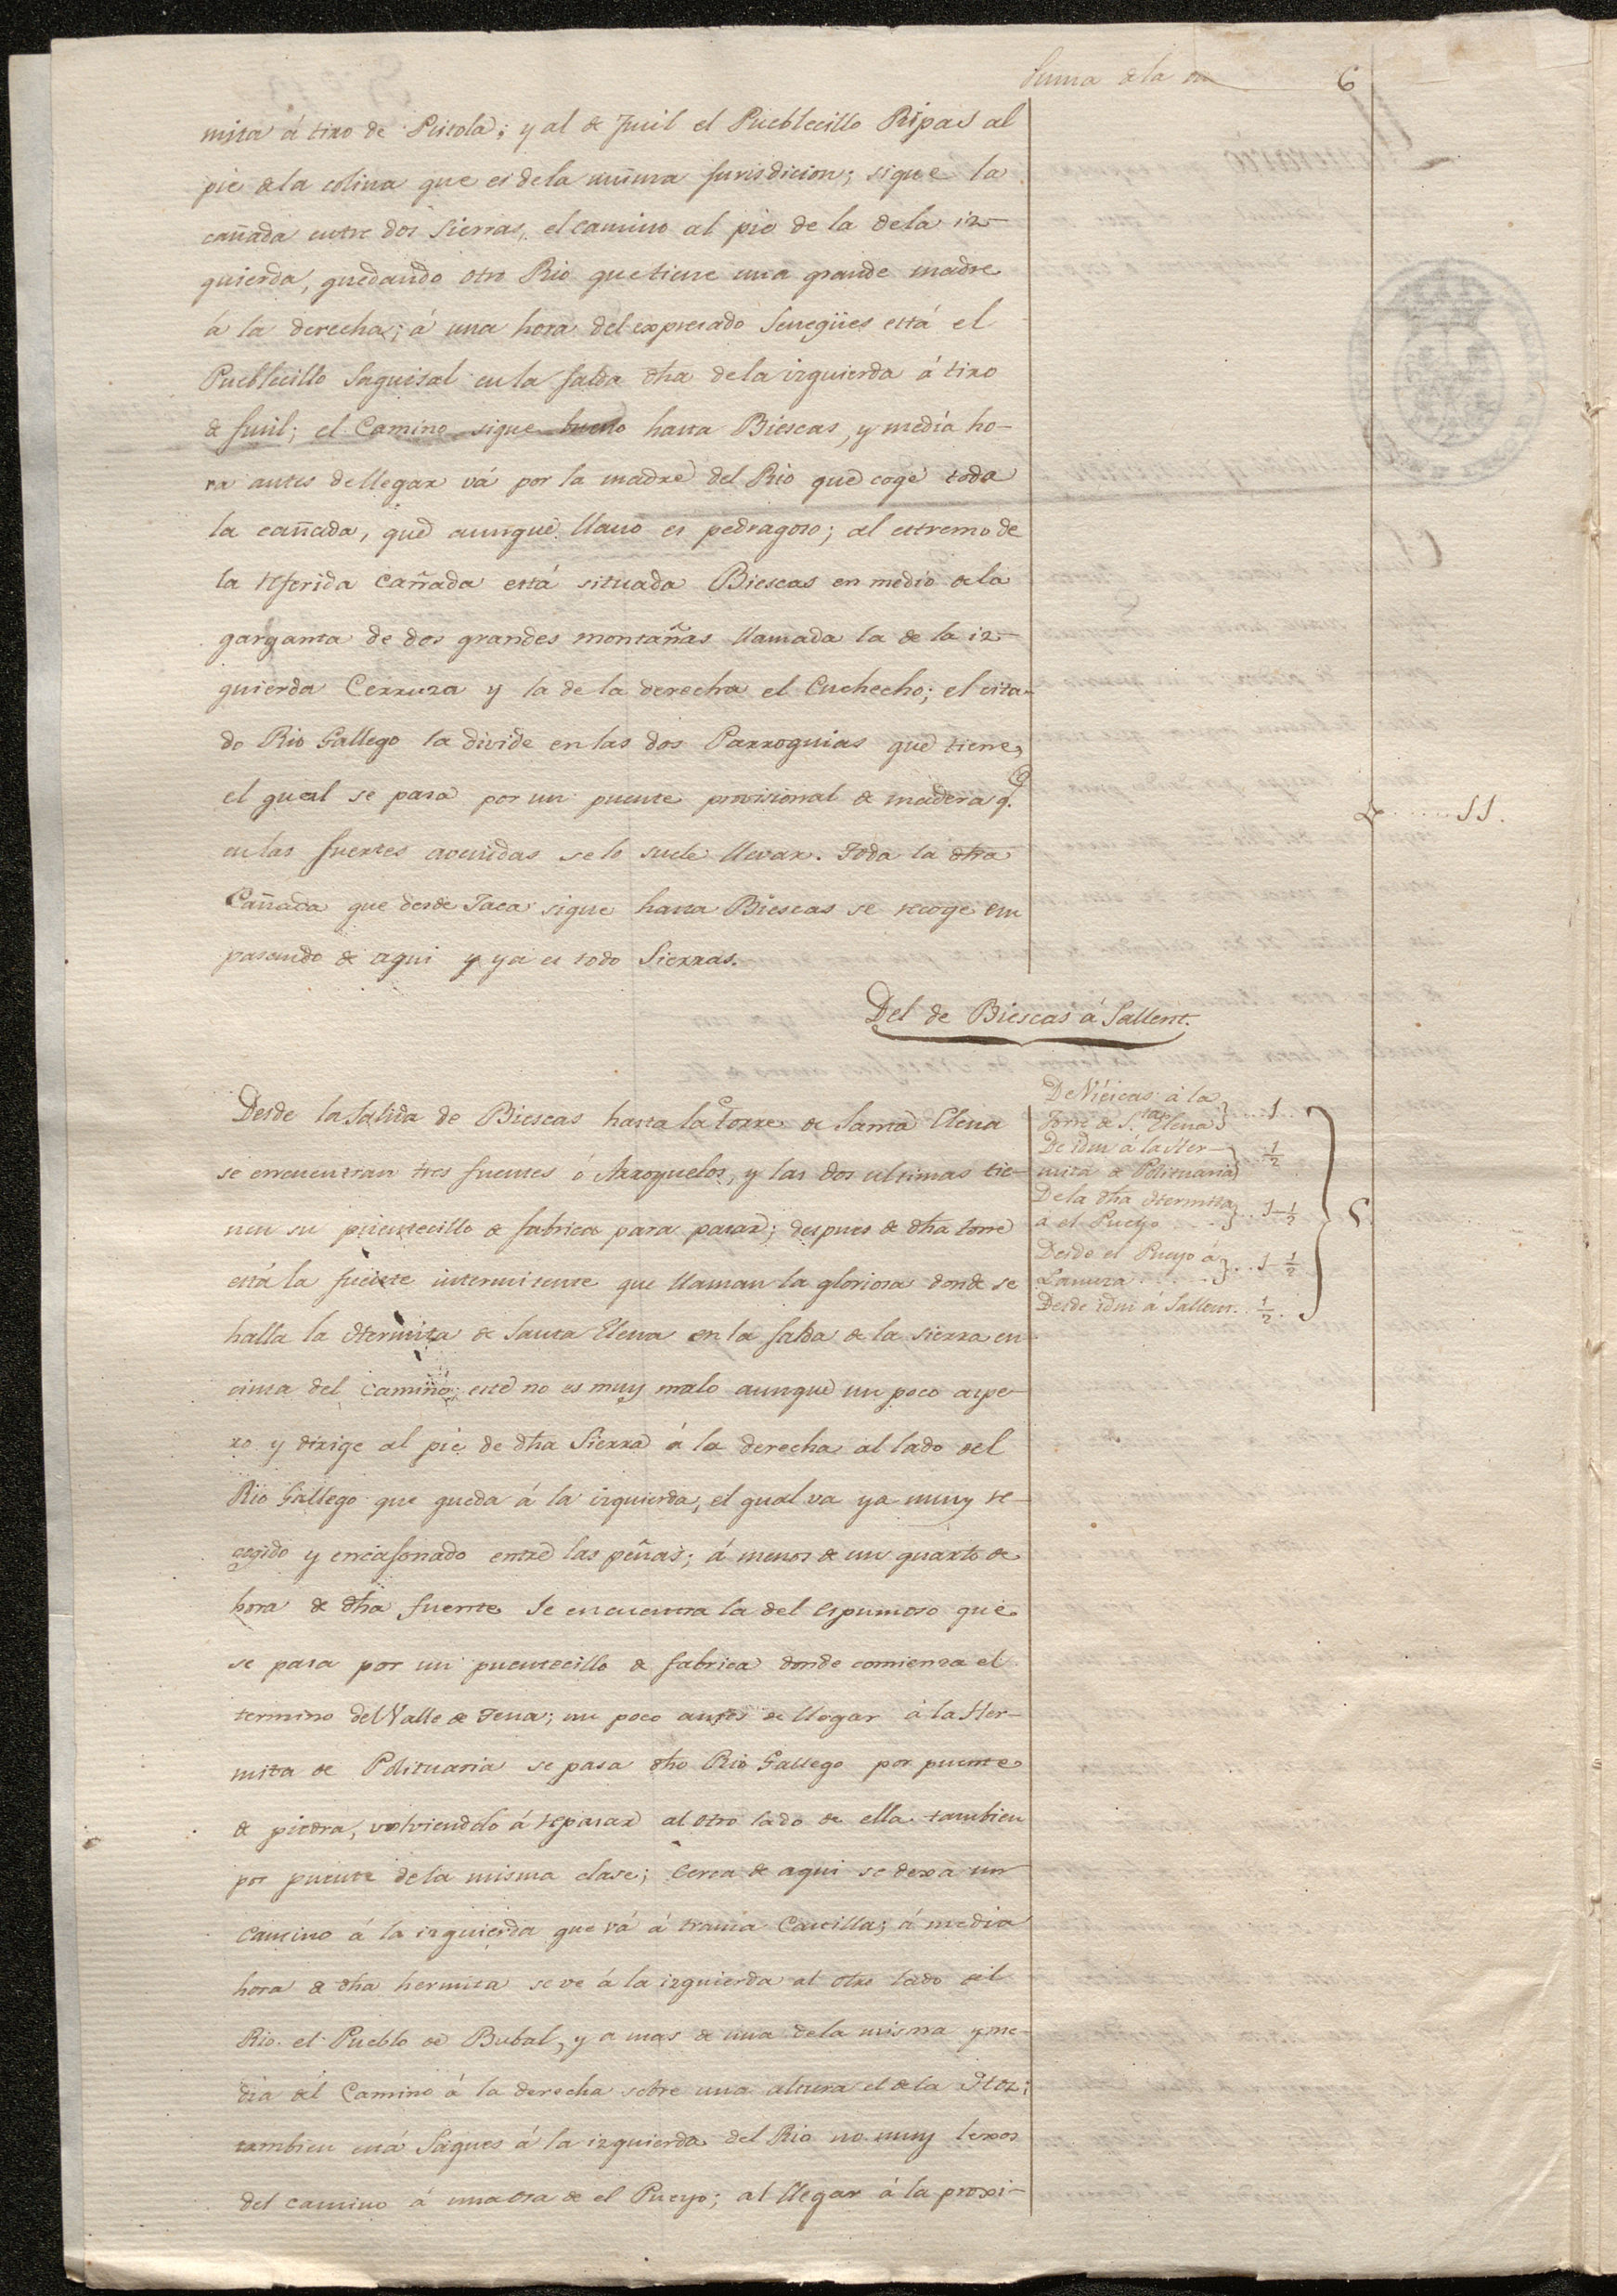 Suma de la vta 6
mita á tiro de Pistola; y al de fusil el Pueblecillo Ripas al
pie de la colina que es de la misma Jurisdicion; sigue la
cañada entre dos Sierras, el camino al pie de la dela iz-
quierda, quedando otro Rio que tiene una grande madre
á la derecha; á una hora del expresado Senegües está el
Pueblecillo Saquisal en la falda dha de la izquierda á tiro
de fusil; el Camino sigue bueno hasta Biescas, y media ho-
ra antes de llegar vá por la madre del Rio que coge toda
la cañada, que aunque llano es pedragoso; al estremo de
la referida Cañada está situada Biescas en medio de la
garganta de dos grandes montañas llamada la de la iz-
quierda Cerruza y la de la derecha el Cuchecho; el cita-
do Rio Gallego la divide en las dos Parroquias que tiene,
el qual se pasa por un puente provisional de madera q.e
en las fuertes avenidas se lo suele llevar. Toda la dha
Cañada que desde Jaca sigue hasta Biescas se recoge em
pasando de aqui y ya es todo Sierras.
11.
Del de Biescas á Sallent.
Desde la Salida de Biescas hasta la Torre de Santa Elena
se encuentran tres fuentes ó Arroyuelos, y las dos ultimas tie-
nen su puentecillo de fabrica para pasar; despues de dha torre
está la fuente intermitente que llaman la gloriosa donde se
halla la Hermita de Santa Elena en la falda de la sierra en-
cima del camino; este no es muy malo aunque un poco aspe-
ro y dirige al pie de dha Sierra á la derecha al lado del
Rio Gallego que queda á la izquierda, el qual va ya muy re-
cogido y encasonado entre las peñas; á menos de un quarto de
hora de dha fuente se encuentra la del espumoso que
se pasa por un puentecillo de fabrica donde comienza el
termino del Valle de Tena; un poco antes de llegar á la Her-
mita de Polituaria se pasa dho Rio Gallego por puente
de piedra, volviendolo á repasar al otro lado de ella tambien
por puente de la misma clase; cerca de aqui se dexa un
camino á la izquierda que vá á trama Castilla; á media
hora de dha hermita se ve á la izquierda al otro lado del
Rio el Pueblo de Bubal, y a mas de una de la misma y me-
dia del Camino á la derecha sobre una altura el de la Hoz;
tambien está Saques á la izquierda del Rio no muy lexos
del camino á una ora de el Pueyo; al llegar á la proxi-
De Viéscas á la
Torre de S.ta Elena 1
De idm á la Her-
mita de Polituaria 1/2
De la dha Hermita
á el Pueyo 1 1/2
Desde el Pueyo á
Lanuza 1 1/2
Desde idm á Sallent. 1/2
5.